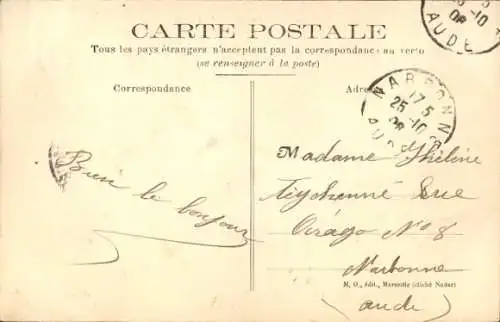 CARTE POSTALE
Tous les pays étrangers n'acceptent pas la correspondance au verso
(se renseigner à la poste)
Correspondance
Adre
AUDE
NARBONNE
17 5
25-10
08
AUDE
Bien le bonjour
Madame
Rue
N° 8
Narbonne
(aude)
M. O., édit., Marseille (cliché Nadar)